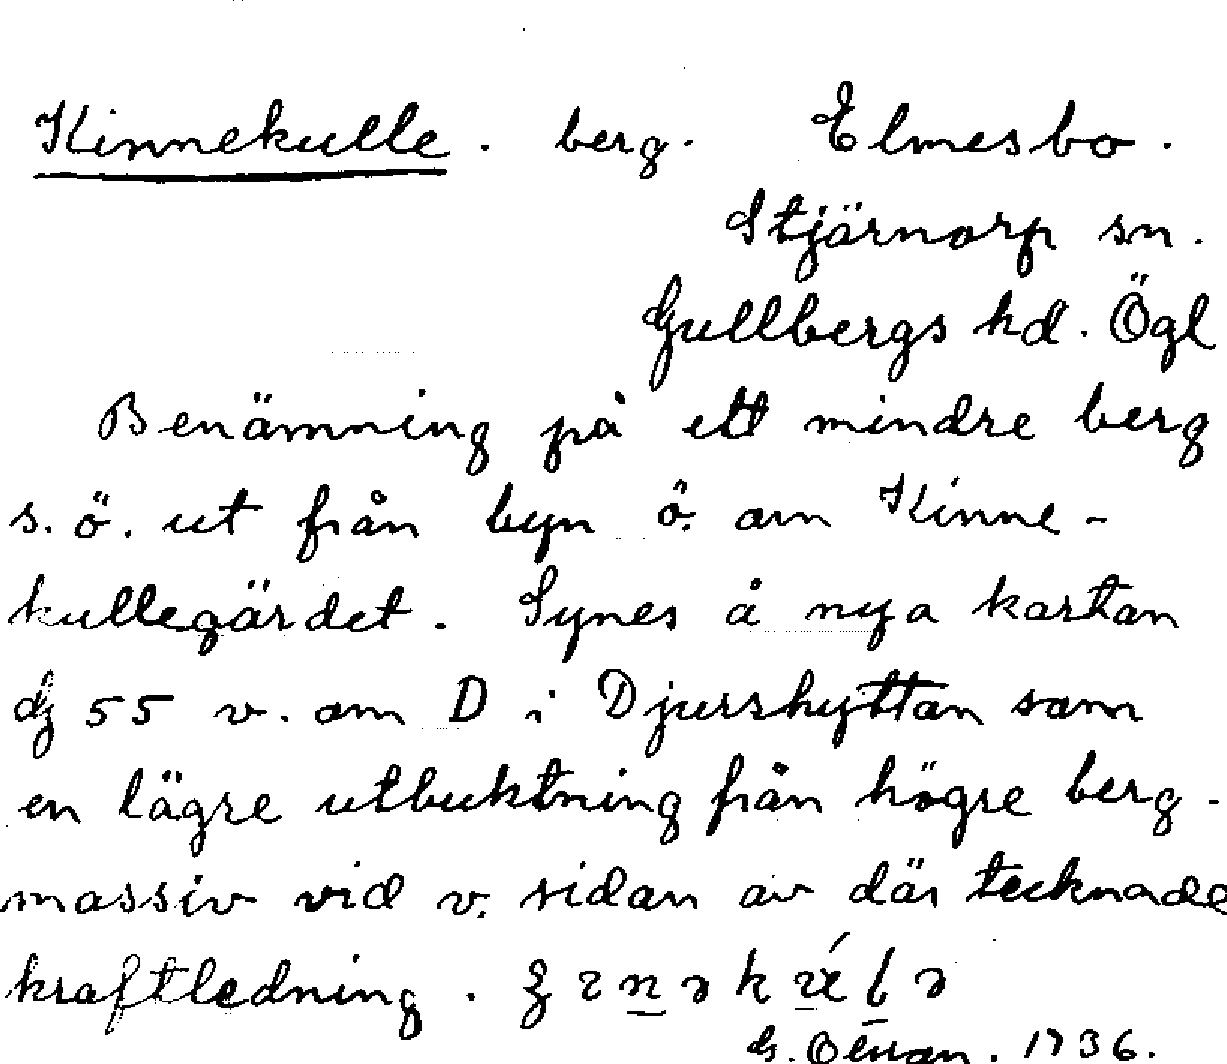 Kinnekulle. berg. Elmesbo.
Stjärnorp sn.
Gullbergs hd. Ögl
Benämning på ett mindre berg
s.ö. ut från byn ö. om Kinne-
kullegärdet. Synes å nya kartan
G 55 v. om D i Djurshyttan som
en lägre utbuktning från högre berg-
massiv vid v. sidan av där tecknade
kraftledning.
G. 1936.